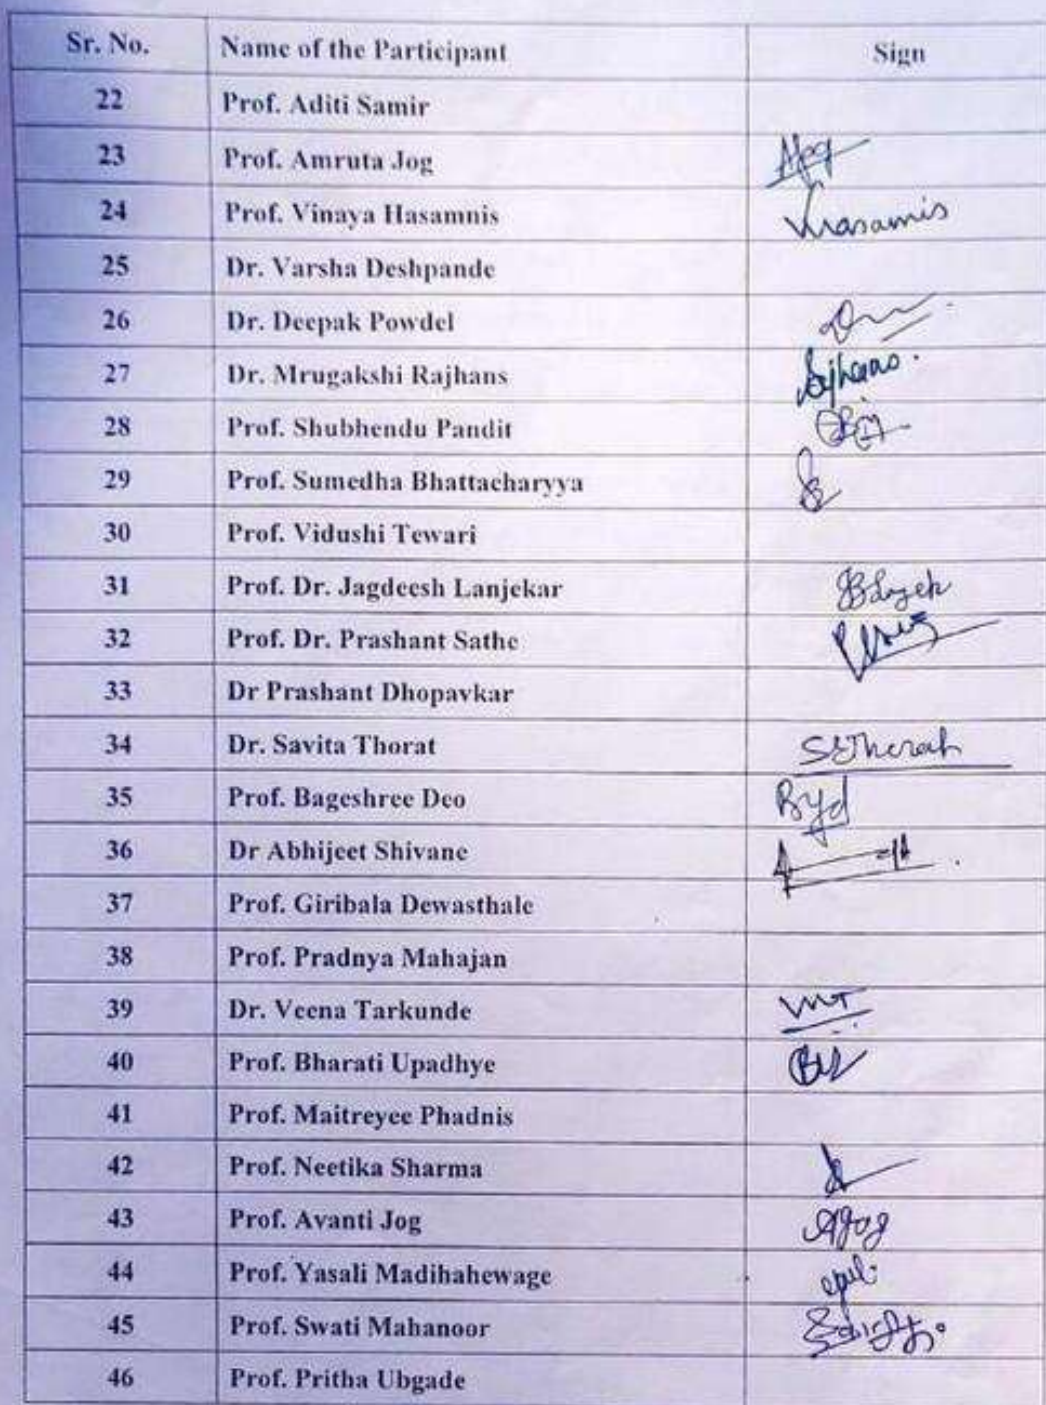 Sr. No. Name of the Participant Sign
22 Prof. Aditi Samir
23 Prof. Amruta Jog AJog
24 Prof. Vinaya Hasamnis Vhasamis
25 Dr. Varsha Deshpande
26 Dr. Deepak Powdel
27 Dr. Mrugakshi Rajhans
28 Prof. Shubhendu Pandit
29 Prof. Sumedha Bhattacharyya
30 Prof. Vidushi Tewari
31 Prof. Dr. Jagdeesh Lanjekar
32 Prof. Dr. Prashant Sathe
33 Dr Prashant Dhopavkar
34 Dr. Savita Thorat SSThorat
35 Prof. Bageshree Deo Byd
36 Dr Abhijeet Shivane
37 Prof. Giribala Dewasthale
38 Prof. Pradnya Mahajan
39 Dr. Veena Tarkunde VMT
40 Prof. Bharati Upadhye
41 Prof. Maitreyee Phadnis
42 Prof. Neetika Sharma
43 Prof. Avanti Jog AJog
44 Prof. Yasali Madihahewage
45 Prof. Swati Mahanoor
46 Prof. Pritha Ubgade